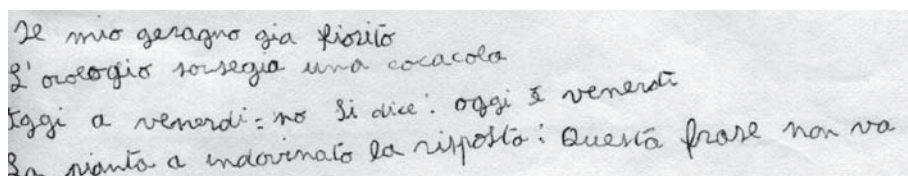 Il mio geragno gia fiorito
L'orologio sorsegia una cocacola
Oggi a venerdi: no si dice: oggi è venerdi
La pianta a indovinato la risposta: Questa frase non va